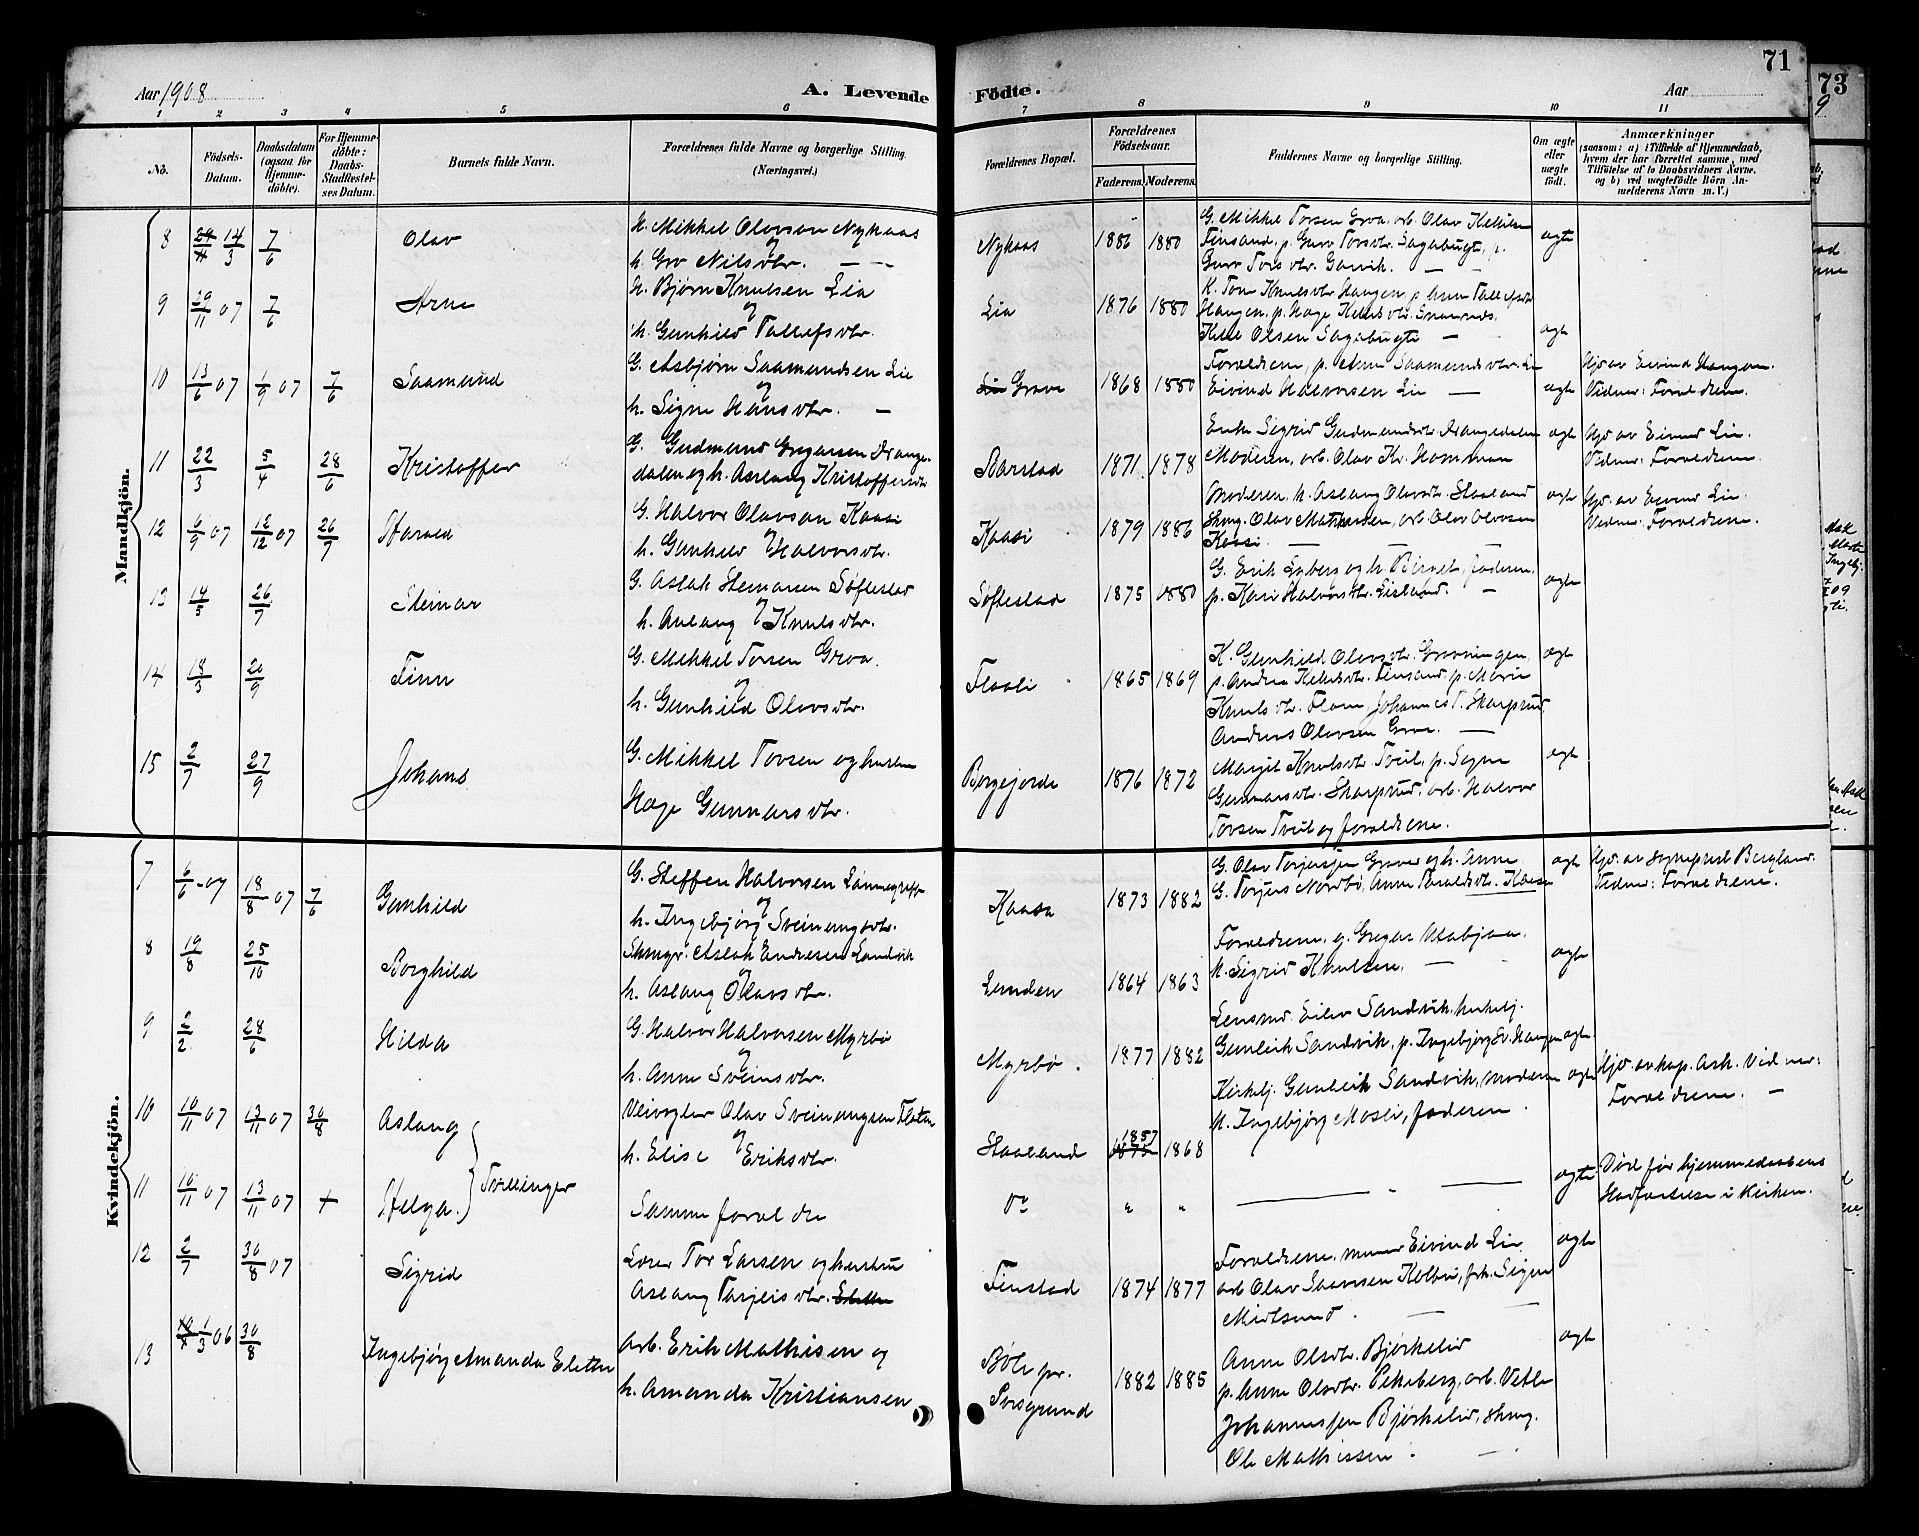 71
73
Aar 1908
A. Levende
Fødte.
Aar
1 2 3 4 5 6 7 8 9 10 11
No.
Fødsels-Datum.
Daabsdatum (ogsaa for Hjemmedøbte).
For Hjemmedøbte: Daabs-Stadfæstelses Datum.
Barnets fulde Navn.
Forældrenes fulde Navne og borgerlige Stilling. (Næringsvei.)
Forældrenes Bopæl.
Forældrenes Fødselsaar.
Faderens. Moderens.
Faddernes Navne og borgerlige Stilling.
Om ægte eller uægte født.
Anmærkninger
(saasom: a) i Tilfælde af Hjemmedaab, hvem der har forrettet samme, med Tilføielse af to Daabsvidners Navne, og b) ved uægtefødte Børn Anmelderens Navn m. V.)
Mandkjön.
8 14/3 7/6 Olav
H. Mikkel Olavson Nykaas
og
h. Gro Nilsdtr. — —
Nykaas 1886 1880
G. Mikkel Torsen Groa, arb. Olav Kittilsen
Finsand, p. Gurv Torsdtr. Sagabugte, p.
Gurv Torsdtr. Garvik. — —
ægte
9 19/11 07 7/6 Arne
H. Bjørn Knutsen Lia
og
h. Gunhild Tallefsdtr.
Lia 1876 1880
K. Tone Knutsdtr Haugen, p. Anne Tallefsdtr
Haugen, p. Hæge Ketilsdtr. Snarnes,
Kittil Olsen Sagabugte —
ægte
10 13/6 07 1/9 07 7/6 Saamund
G. Asbjørn Saamundsen Lie
og
h. Signe Hansdtr. —
Lie Grave 1868 1880
Forældrene, p. Anne Saamundsdtr. Lie
Eivind Halvorsen Lie —
ægte
Hjd. av Eivind Haugen.
Vidner: Forældrene.
11 22/3 5/4 28/6 Kristoffer
G. Gudmund Gregarsen Drange-
dalen og h. Aslaug Kristoffersdtr
Barstad 1871 1878
Enke Sigrid Gudmundsdtr Drangedalen
Moderen, arb. Olav Kr. Homman
ægte
Hjd. av Eivind Lie.
Vidner: Forældrene.
12 6/9 07 12/12 07 26/7 Harald
G. Halvor Olavson Kaasi
h. Gunhild og Halvorsdtr.
Kaasi 1879 1886
Moderen, h. Aslaug Olavsdtr. Staaland
Skmg. Olav Mathisen, arb. Olav Olavsen
Kaasi. — — —
ægte
Hjd. av Eivind Lie.
Vidner: Forældrene.
13 14/5 26/7 Steinar
G. Aslak Steinarsen Søftestad
h. Aslaug og Knutsdtr.
Søftestad 1875 1880
G. Erik Enberg og h. Birgit, faderen,
p. Kari Halvorsdtr. Lisland. —
ægte
14 18/3 20/9 Finn
G. Mikkel Torsen Groa.
og
h. Gunhild Olavsdtr.
Flaali 1865 1869
K. Gunhild Olavsdtr. Grovningen,
p. Andrea Ketilsdtr. Finsand, p. Marie
Knutsdtr. Flom, Johannes T. Skarprud
Andreas Olavsen Groa. —
ægte
15 2/7 27/9 Johans
G. Mikkel Torsen og hustru
Hæge Gunnarsdtr.
Borgejorde 1876 1872
Margit Knutsdtr. Tveit, p. Signe
Gunnarsdtr. Skarprud, arb. Halvor
Torsen Tveit og forældrene.
ægte
Kvindekjön.
7 6/6 07 18/8 07 7/6 Gunhild
G. Steffen Halvorsen Lønnegrave
og
h. Ingebjørg Sveinungsdtr.
Kaasa 1873 1882
G. Olav Torjussen Graver og h. Anne
G. Torjus Nordbø, Anne Taraldsdtr. Kaasa
ægte
Hjd. av sogneprest Bergland.
Vidner: Forældrene.
8 19/8 25/10 Borghild
Skmgr. Aslak Endresen Landvik
og
h. Aslaug Olavsdtr.
Lunden 1864 1863
Forældrene, g. Gregar Utabjaa.
M. Sigrid Knutsen. — —
ægte
9 2/2 28/6 Hilda
G. Halvor Halvorsen Myrbø
og
h. Anne Sveinsdtr.
Myrbø. 1877 1882
Lensmd. Eilev Sandvik, kirkelj.
Gunleik Sandvik, p. Ingebjørg Sv. Haugen
ægte
10 10/11 07 13/11 07 30/8 Aslaug
Veivogter Olav Sveinungsen Flaten
h. Elise og Eriksdtr.
Staaland 1857 1868
Kirkelj. Gunleik Sandvik, moderen
M. Ingebjørg Mosli, faderen.
ægte
Hjd. av kap. Ask. Vidner:
Forældrene. —
11 10/11 07 13/11 07 + Helga.
Tvillinger
Samme forældre
Do " "
— " —
ægte
Død før hjemmedaabens
stadfæstelse i kirken.
12 2/7 30/8 07 Sigrid
Lærer Tor Larsen og hustru
Aslaug Tarjeisdtr.
Finstad 1874 1877
Forældrene, murer Eivind Lie
arb Olav Saavesen Kolbu, frk. Signe
Midtsund. — —
ægte
13 1/3 06 30/8 Ingebjørg Amanda Elettra
Arb. Erik Mathisen og
h. Amanda Kristiansen
Bøle pr.
Porsgrund 1882 1885
Anne Olsdtr. Bjørkelid
p. Anne Olsdtr. Pekeberg, arb. Vetle
Johannessen Bjørkelid, skmg.
Ole Mathissen. —
ægte